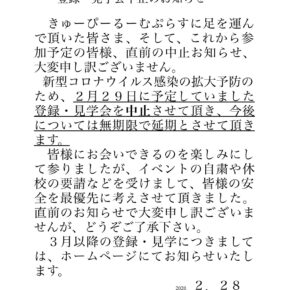 登録・見学会中止のお知らせ
きゅーぴーるーむぷらすに足を運ん
で頂いた皆さま、そして、これから参
加予定の皆様、直前の中止お知らせ、
大変申し訳ございません。
新型コロナウイルス感染の拡大予防の
ため、２月２９日に予定していました
登録・見学会を中止させて頂き、今後
については無期限で延期とさせて頂き
ます。
皆様にお会いできるのを楽しみにし
て参りましたが、イベントの自粛や休
校の要請などを受けまして、皆様の安
全を最優先に考えさせて頂きました。
直前のお知らせで大変申し訳ございま
せんが、どうぞご了承下さい。
３月以降の登録・見学につきまして
は、ホームページにてお知らせいたし
ます。
2020. 2. 28